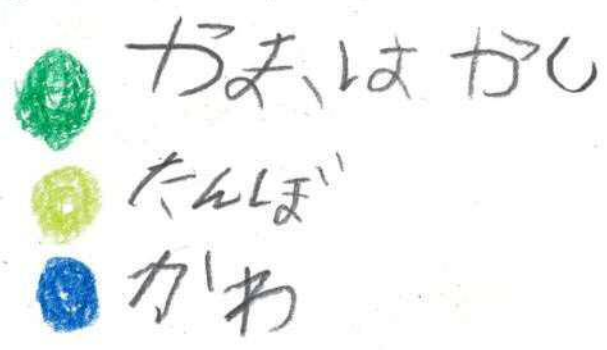 やま、はやし
たんぼ
かわ